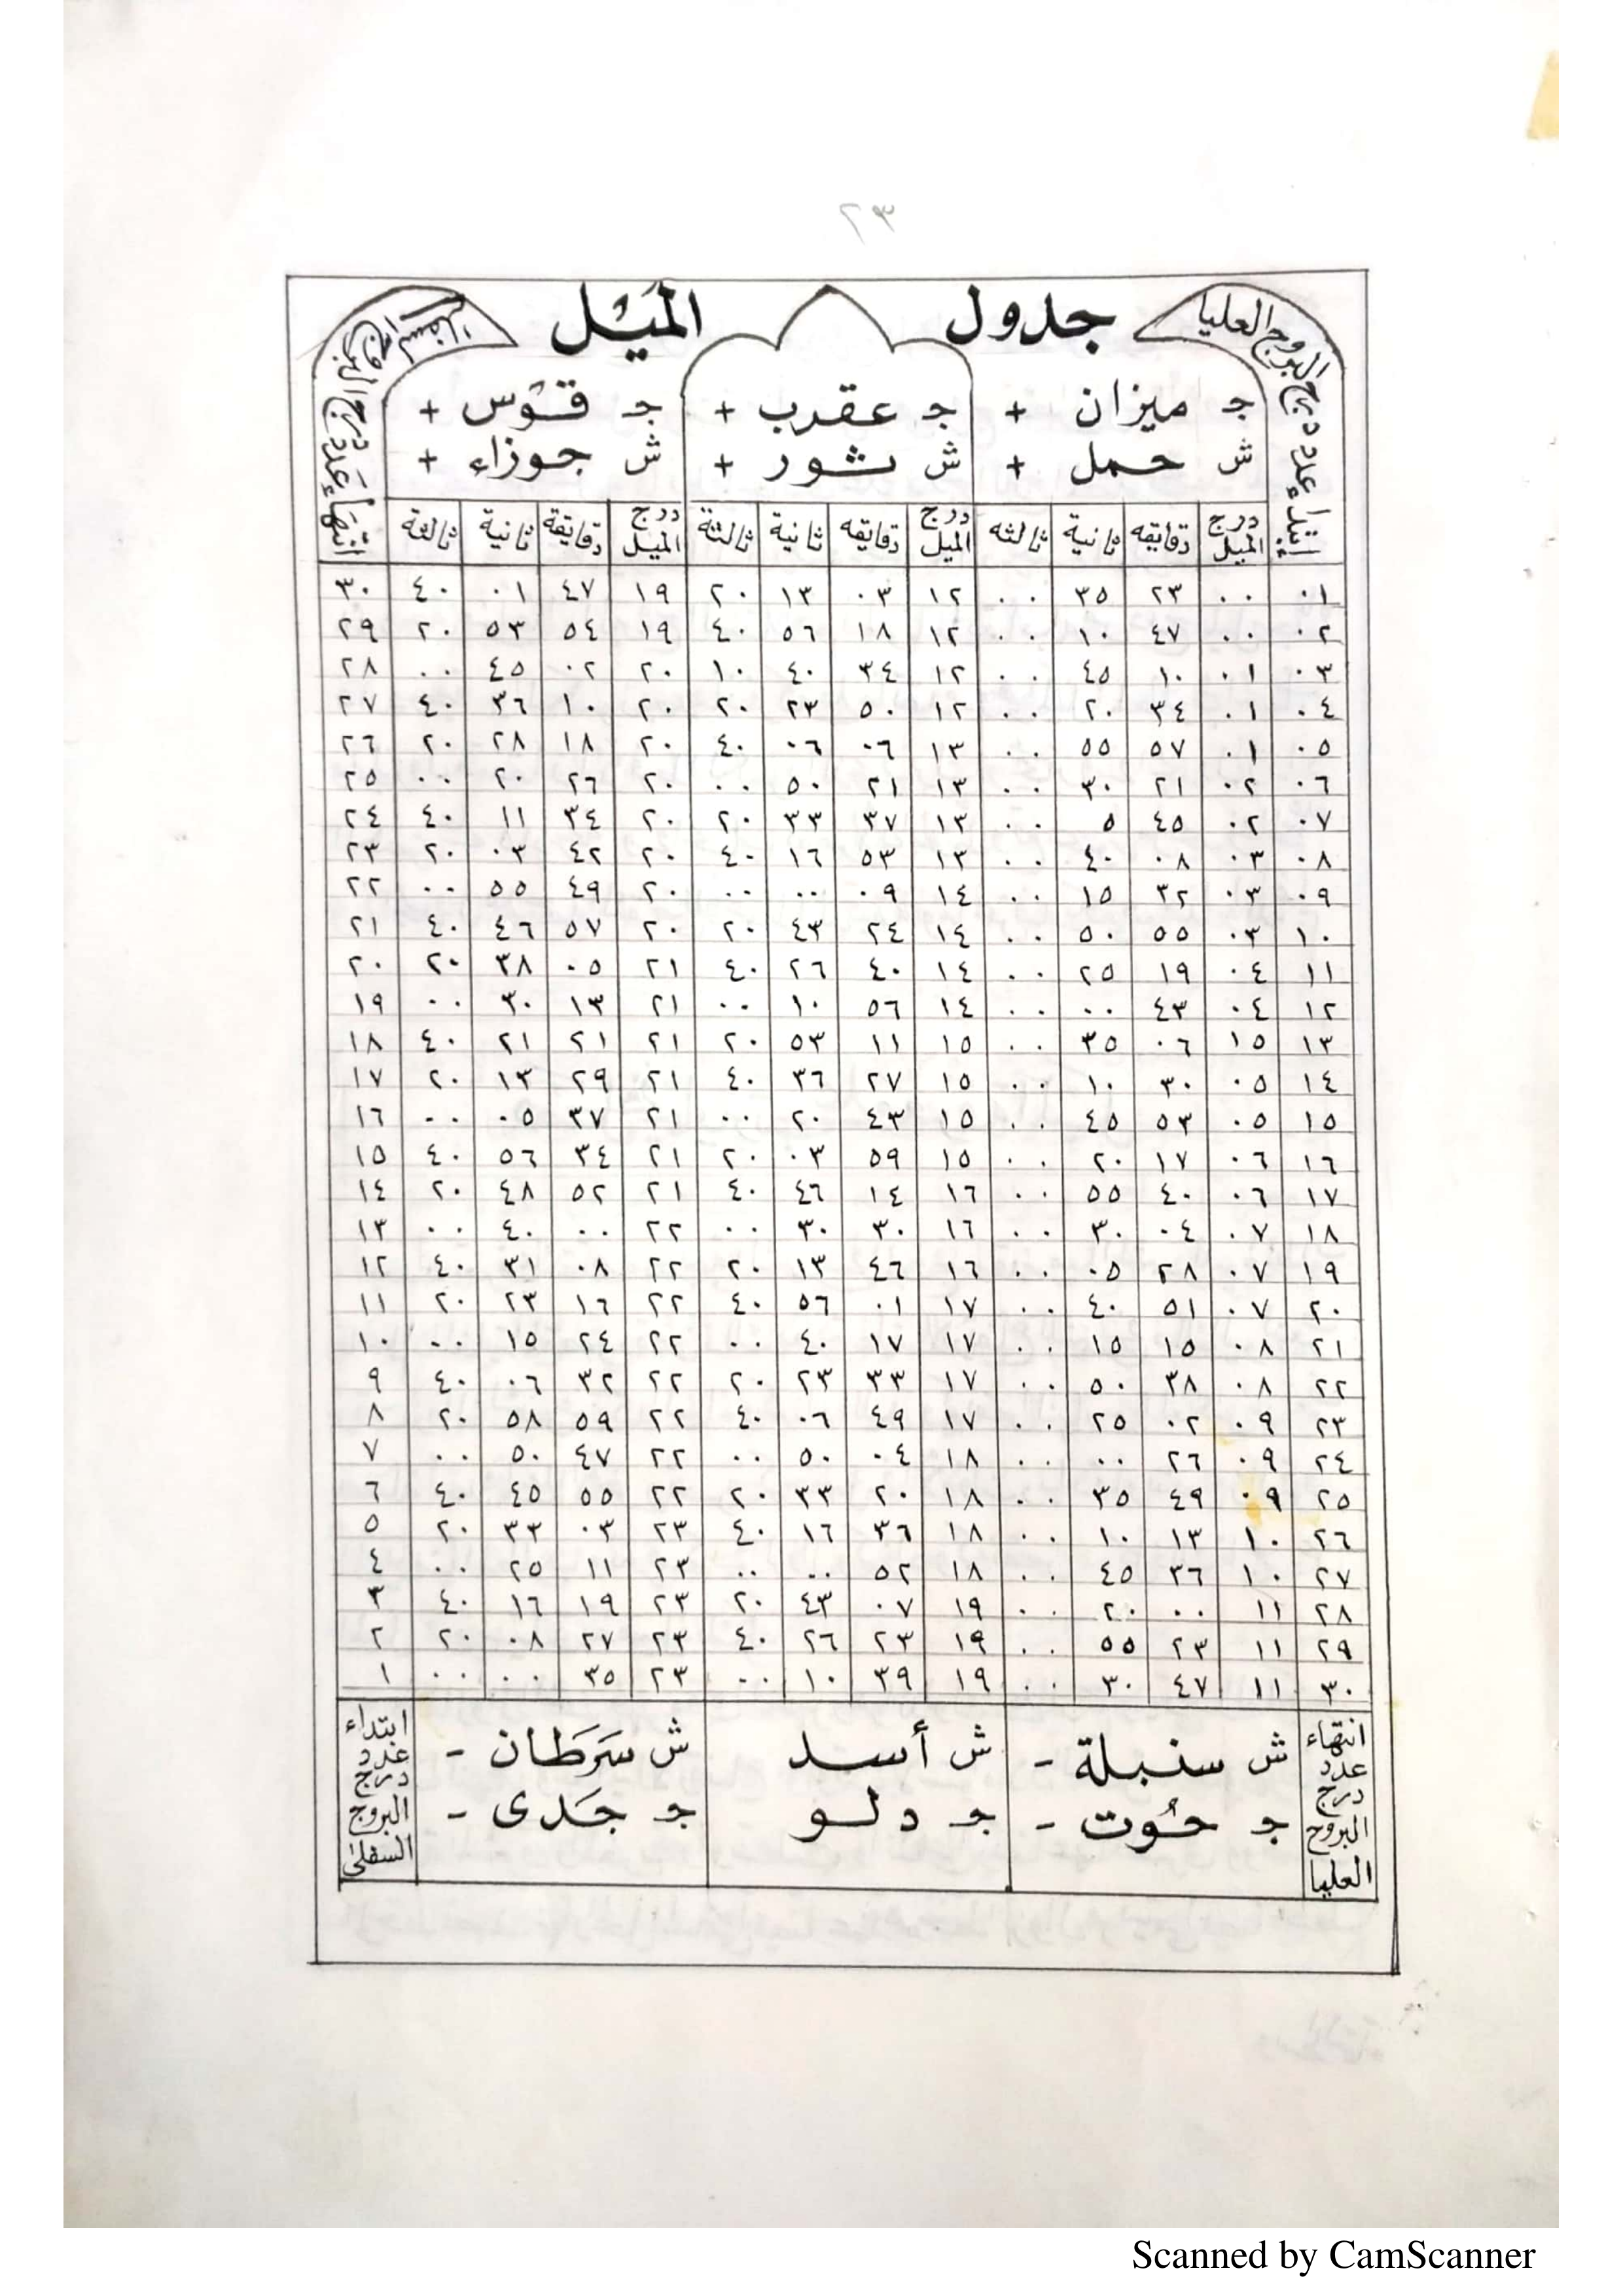 ٢٣
جدول الميل
ابتداء عدد درج البروج العليا
ج ميزان + ج عقرب + ج قوس +
ش حمل + ش ثور + ش جوزاء +
انتهاء عدد درج البروج السفلى
درج الميل دقايقه ثانية ثالثه درج الميل دقايقه ثانية ثالثة درج الميل دقايقة ثانية ثالثة
٠١ ٠٠ ٢٣ ٣٥ ٠٠ ١٢ ٠٣ ١٣ ٢٠ ١٩ ٤٧ ٠١ ٤٠ ٣٠
٠٢ ٠٠ ٤٧ ١٠ ٠٠ ١٢ ١٨ ٥٦ ٤٠ ١٩ ٥٤ ٥٣ ٢٠ ٢٩
٠٣ ٠١ ١٠ ٤٥ ٠٠ ١٢ ٣٤ ٤٠ ١٠ ٢٠ ٠٢ ٤٥ ٠٠ ٢٨
٠٤ ٠١ ٣٤ ٢٠ ٠٠ ١٢ ٥٠ ٢٣ ٢٠ ٢٠ ١٠ ٣٦ ٤٠ ٢٧
٠٥ ٠١ ٥٧ ٥٥ ٠٠ ١٣ ٠٦ ٠٦ ٤٠ ٢٠ ١٨ ٢٨ ٢٠ ٢٦
٠٦ ٠٢ ٢١ ٣٠ ٠٠ ١٣ ٢١ ٥٠ ٠٠ ٢٠ ٢٦ ٢٠ ٠٠ ٢٥
٠٧ ٠٢ ٤٥ ٥ ٠٠ ١٣ ٣٧ ٣٣ ٢٠ ٢٠ ٣٤ ١١ ٤٠ ٢٤
٠٨ ٠٣ ٠٨ ٤٠ ٠٠ ١٣ ٥٣ ١٦ ٤٠ ٢٠ ٤٢ ٠٣ ٢٠ ٢٣
٠٩ ٠٣ ٣٢ ١٥ ٠٠ ١٤ ٠٩ ٠٠ ٠٠ ٢٠ ٤٩ ٥٥ ٠٠ ٢٢
١٠ ٠٣ ٥٥ ٥٠ ٠٠ ١٤ ٢٤ ٤٣ ٢٠ ٢٠ ٥٧ ٤٦ ٤٠ ٢١
١١ ٠٤ ١٩ ٢٥ ٠٠ ١٤ ٤٠ ٢٦ ٤٠ ٢١ ٠٥ ٣٨ ٢٠ ٢٠
١٢ ٠٤ ٤٣ ٠٠ ٠٠ ١٤ ٥٦ ١٠ ٠٠ ٢١ ١٣ ٣٠ ٠٠ ١٩
١٣ ١٥ ٠٦ ٣٥ ٠٠ ١٥ ١١ ٥٣ ٢٠ ٢١ ٢١ ٢١ ٤٠ ١٨
١٤ ٠٥ ٣٠ ١٠ ٠٠ ١٥ ٢٧ ٣٦ ٤٠ ٢١ ٢٩ ١٣ ٢٠ ١٧
١٥ ٠٥ ٥٣ ٤٥ ٠٠ ١٥ ٤٣ ٢٠ ٠٠ ٢١ ٣٧ ٠٥ ٠٠ ١٦
١٦ ٠٦ ١٧ ٢٠ ٠٠ ١٥ ٥٩ ٠٣ ٢٠ ٢١ ٣٤ ٥٦ ٤٠ ١٥
١٧ ٠٦ ٤٠ ٥٥ ٠٠ ١٦ ١٤ ٤٦ ٤٠ ٢١ ٥٢ ٤٨ ٢٠ ١٤
١٨ ٠٧ ٠٤ ٣٠ ٠٠ ١٦ ٣٠ ٣٠ ٠٠ ٢٢ ٠٠ ٤٠ ٠٠ ١٣
١٩ ٠٧ ٢٨ ٠٥ ٠٠ ١٦ ٤٦ ١٣ ٢٠ ٢٢ ٠٨ ٣١ ٤٠ ١٢
٢٠ ٠٧ ٥١ ٤٠ ٠٠ ١٧ ٠١ ٥٦ ٤٠ ٢٢ ١٦ ٢٣ ٢٠ ١١
٢١ ٠٨ ١٥ ١٥ ٠٠ ١٧ ١٧ ٤٠ ٠٠ ٢٢ ٢٤ ١٥ ٠٠ ١٠
٢٢ ٠٨ ٣٨ ٥٠ ٠٠ ١٧ ٣٣ ٢٣ ٢٠ ٢٢ ٣٢ ٠٦ ٤٠ ٩
٢٣ ٠٩ ٠٢ ٢٥ ٠٠ ١٧ ٤٩ ٠٦ ٤٠ ٢٢ ٥٩ ٥٨ ٢٠ ٨
٢٤ ٠٩ ٢٦ ٠٠ ٠٠ ١٨ ٠٤ ٥٠ ٠٠ ٢٢ ٤٧ ٥٠ ٠٠ ٧
٢٥ ٠٩ ٤٩ ٣٥ ٠٠ ١٨ ٢٠ ٣٣ ٢٠ ٢٢ ٥٥ ٤٥ ٤٠ ٦
٢٦ ١٠ ١٣ ١٠ ٠٠ ١٨ ٣٦ ١٦ ٤٠ ٢٣ ٠٣ ٣٣ ٢٠ ٥
٢٧ ١٠ ٣٦ ٤٥ ٠٠ ١٨ ٥٢ ٠٠ ٠٠ ٢٣ ١١ ٢٥ ٠٠ ٤
٢٨ ١١ ٠٠ ٢٠ ٠٠ ١٩ ٠٧ ٤٣ ٢٠ ٢٣ ١٩ ١٦ ٤٠ ٣
٢٩ ١١ ٢٣ ٥٥ ٠٠ ١٩ ٢٣ ٢٦ ٤٠ ٢٣ ٢٧ ٠٨ ٢٠ ٢
٣٠ ١١ ٤٧ ٣٠ ٠٠ ١٩ ٣٩ ١٠ ٠٠ ٢٣ ٣٥ ٠٠ ٠٠ ١
انتهاء
عدد
درج
البروج
العليا
ش سنبلة - ش أسد ش سَرَطان -
ج حُوت - ج دلو ج جَدى -
ابتداء
عدد
درج
البروج
السفلى
Scanned by CamScanner